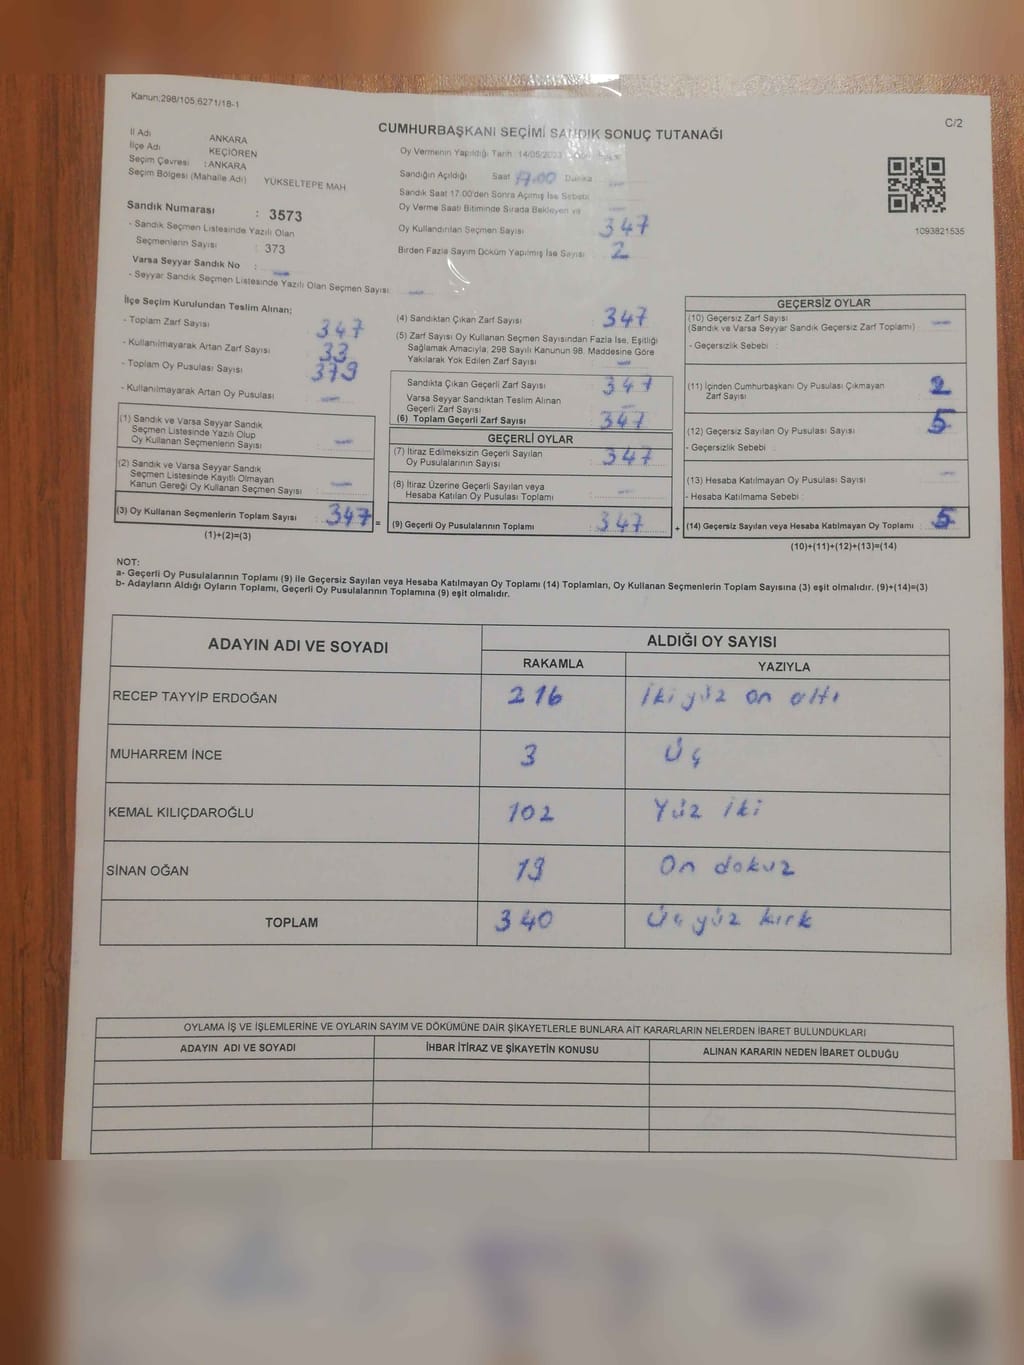 Kanun:298/105.6271/18-1
C/2
CUMHURBAŞKANI SEÇİMİ SANDIK SONUÇ TUTANAĞI
İl Adı ANKARA
İlçe Adı KEÇİÖREN
Seçim Çevresi : ANKARA
Seçim Bölgesi (Mahalle Adı) YÜKSELTEPE MAH.
Sandık Numarası : 3573
- Sandık Seçmen Listesinde Yazılı Olan
Seçmenlerin Sayısı : 373
Varsa Seyyar Sandık No : —
- Seyyar Sandık Seçmen Listesinde Yazılı Olan Seçmen Sayısı: —
Oy Vermenin Yapıldığı Tarih :14/05/2023
Sandığın Açıldığı Saat 17.00 Dakika —
Sandık Saat 17.00'den Sonra Açmış İse Sebebi
Oy Verme Saati Bitiminde Sırada Bekleyen ve —
Oy Kullandırılan Seçmen Sayısı 347
Birden Fazla Sayım Döküm Yapılmış İse Sayısı 2
1093821535
İlçe Seçim Kurulundan Teslim Alınan;
- Toplam Zarf Sayısı 347
- Kullanılmayarak Artan Zarf Sayısı 33
- Toplam Oy Pusulası Sayısı 379
- Kullanılmayarak Artan Oy Pusulası —
(1) Sandık ve Varsa Seyyar Sandık
Seçmen Listesinde Yazılı Olup
Oy Kullanan Seçmenlerin Sayısı : —
(2) Sandık ve Varsa Seyyar Sandık
Seçmen Listesinde Kayıtlı Olmayan
Kanun Gereği Oy Kullanan Seçmen Sayısı : —
(3) Oy Kullanan Seçmenlerin Toplam Sayısı : 347 =
(1)+(2)=(3)
(4) Sandıktan Çıkan Zarf Sayısı 347
(5) Zarf Sayısı Oy Kullanan Seçmen Sayısından Fazla İse, Eşitliği
Sağlamak Amacıyla, 298 Sayılı Kanunun 98. Maddesine Göre
Yakılarak Yok Edilen Zarf Sayısı : —
Sandıkta Çıkan Geçerli Zarf Sayısı : 347
Varsa Seyyar Sandıktan Teslim Alınan
Geçerli Zarf Sayısı —
(6) Toplam Geçerli Zarf Sayısı 347
GEÇERLİ OYLAR
(7) İtiraz Edilmeksizin Geçerli Sayılan
Oy Pusulalarının Sayısı : 347
(8) İtiraz Üzerine Geçerli Sayılan veya
Hesaba Katılan Oy Pusulası Toplamı : —
(9) Geçerli Oy Pusulalarının Toplamı : 347 +
GEÇERSİZ OYLAR
(10) Geçersiz Zarf Sayısı —
(Sandık ve Varsa Seyyar Sandık Geçersiz Zarf Toplamı)
- Geçersizlik Sebebi :
(11) İçinden Cumhurbaşkanı Oy Pusulası Çıkmayan 2
Zarf Sayısı
(12) Geçersiz Sayılan Oy Pusulası Sayısı : 5
- Geçersizlik Sebebi :
(13) Hesaba Katılmayan Oy Pusulası Sayısı : —
- Hesaba Katılmama Sebebi :
(14) Geçersiz Sayılan veya Hesaba Katılmayan Oy Toplamı : 5
(10)+(11)+(12)+(13)=(14)
NOT:
a- Geçerli Oy Pusulalarının Toplamı (9) ile Geçersiz Sayılan veya Hesaba Katılmayan Oy Toplamı (14) Toplamları, Oy Kullanan Seçmenlerin Toplam Sayısına (3) eşit olmalıdır. (9)+(14)=(3)
b- Adayların Aldığı Oyların Toplamı, Geçerli Oy Pusulalarının Toplamına (9) eşit olmalıdır.
ADAYIN ADI VE SOYADI ALDIĞI OY SAYISI
RAKAMLA YAZIYLA
RECEP TAYYİP ERDOĞAN 216 İki yüz on altı
MUHARREM İNCE 3 Üç
KEMAL KILIÇDAROĞLU 102 Yüz iki
SİNAN OĞAN 19 On dokuz
TOPLAM 340 Üç yüz kırk
OYLAMA İŞ VE İŞLEMLERİNE VE OYLARIN SAYIM VE DÖKÜMÜNE DAİR ŞİKAYETLERLE BUNLARA AİT KARARLARIN NELERDEN İBARET BULUNDUKLARI
ADAYIN ADI VE SOYADI İHBAR İTİRAZ VE ŞİKAYETİN KONUSU ALINAN KARARIN NEDEN İBARET OLDUĞU